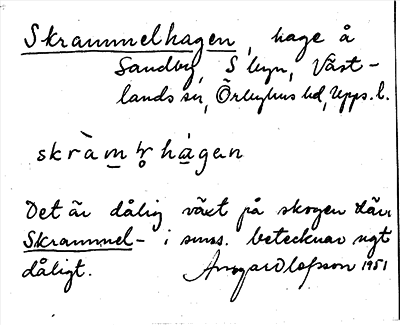 Skrammelhagen, hage å
Sandby, S byn, Väst-
lands sn, Örbyhus hd, Upps. l.
skràm hágen
Det är dålig växt på skogen där.
Skrammel- i smss. betecknar ngt
dåligt. Ansgar Olofsson 1951